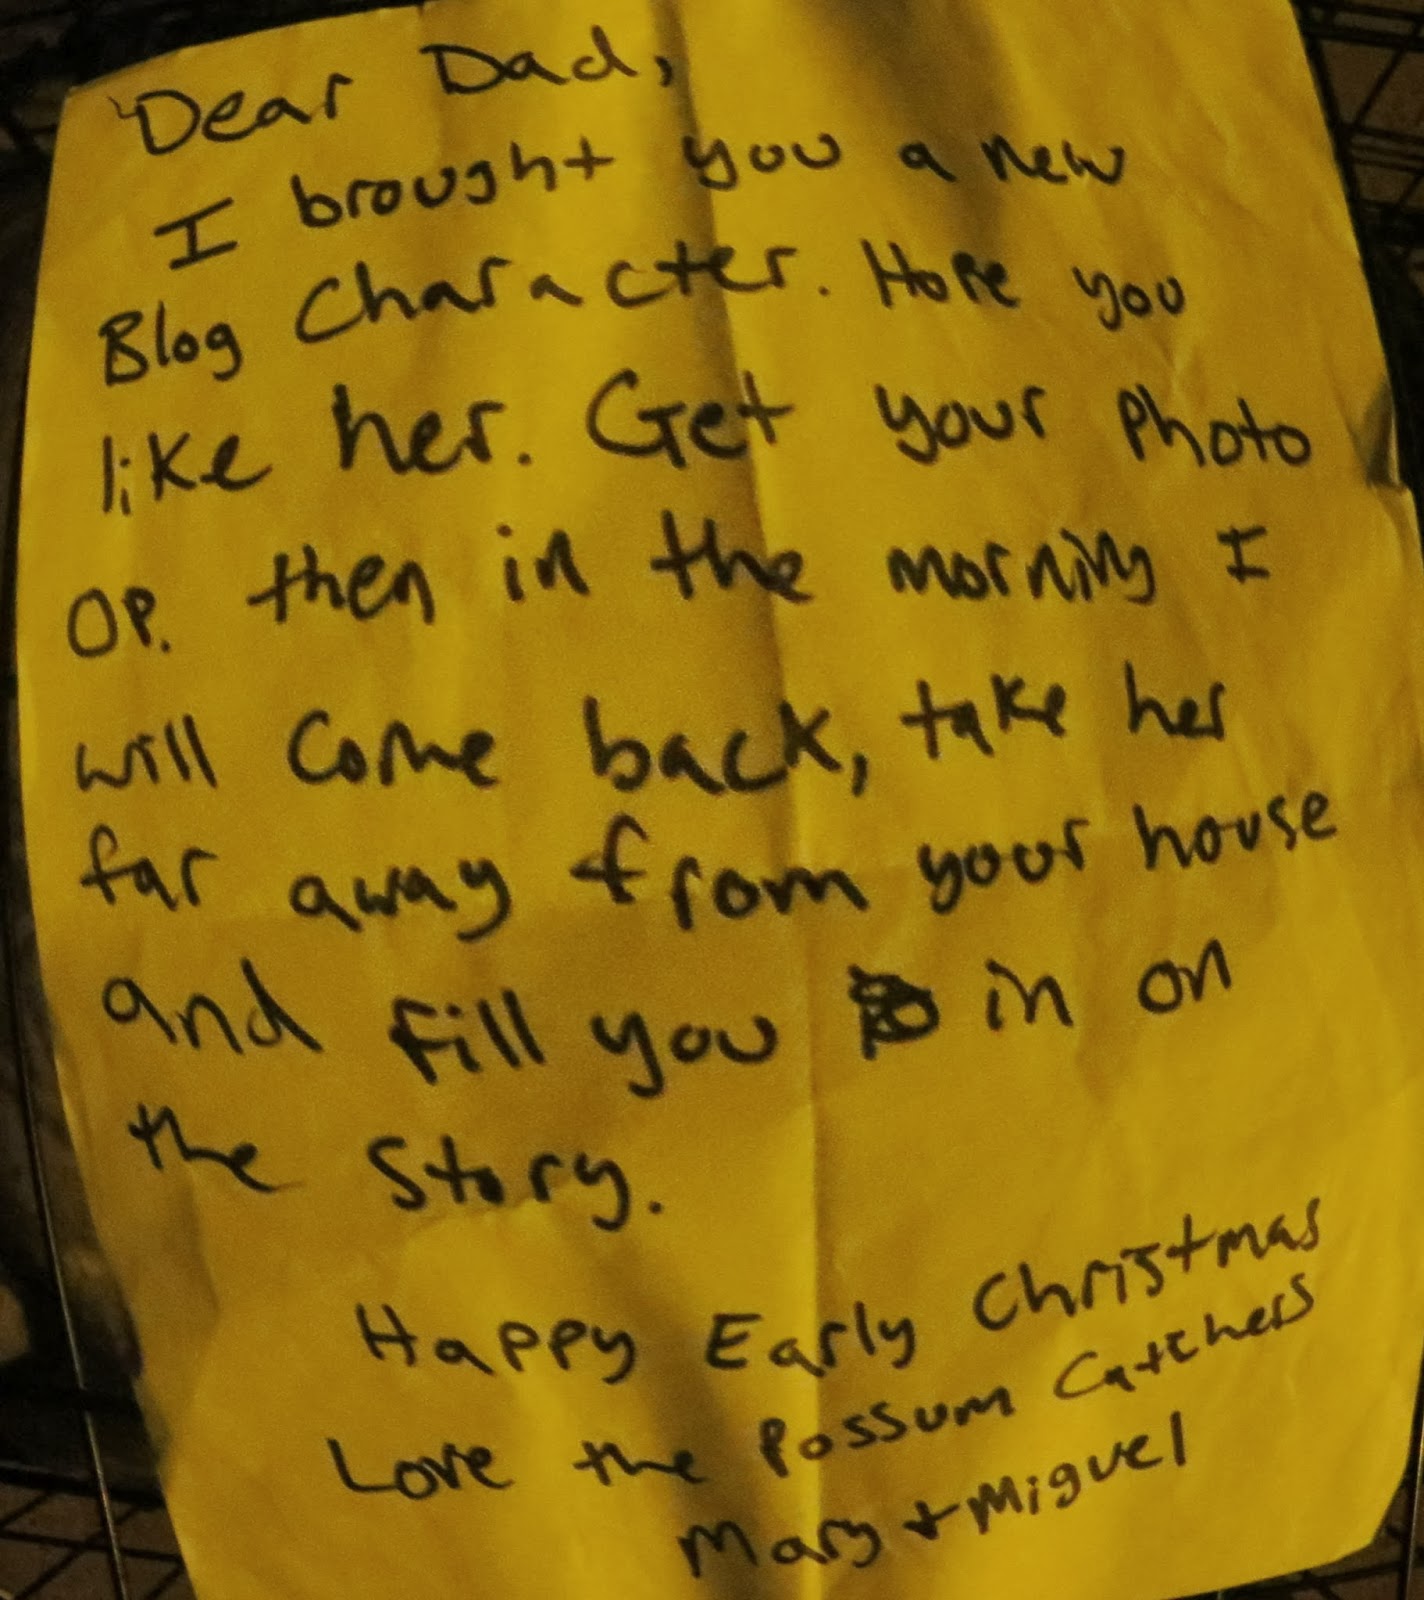 Dear Dad,
I brought you a new
Blog Character. Hope you
like her. Get your Photo
OP. then in the morning I
will Come back, take her
far away from your house
and fill you in on
the Story.
Happy Early Christmas
Love the Possum Catchers
Mary + Miguel